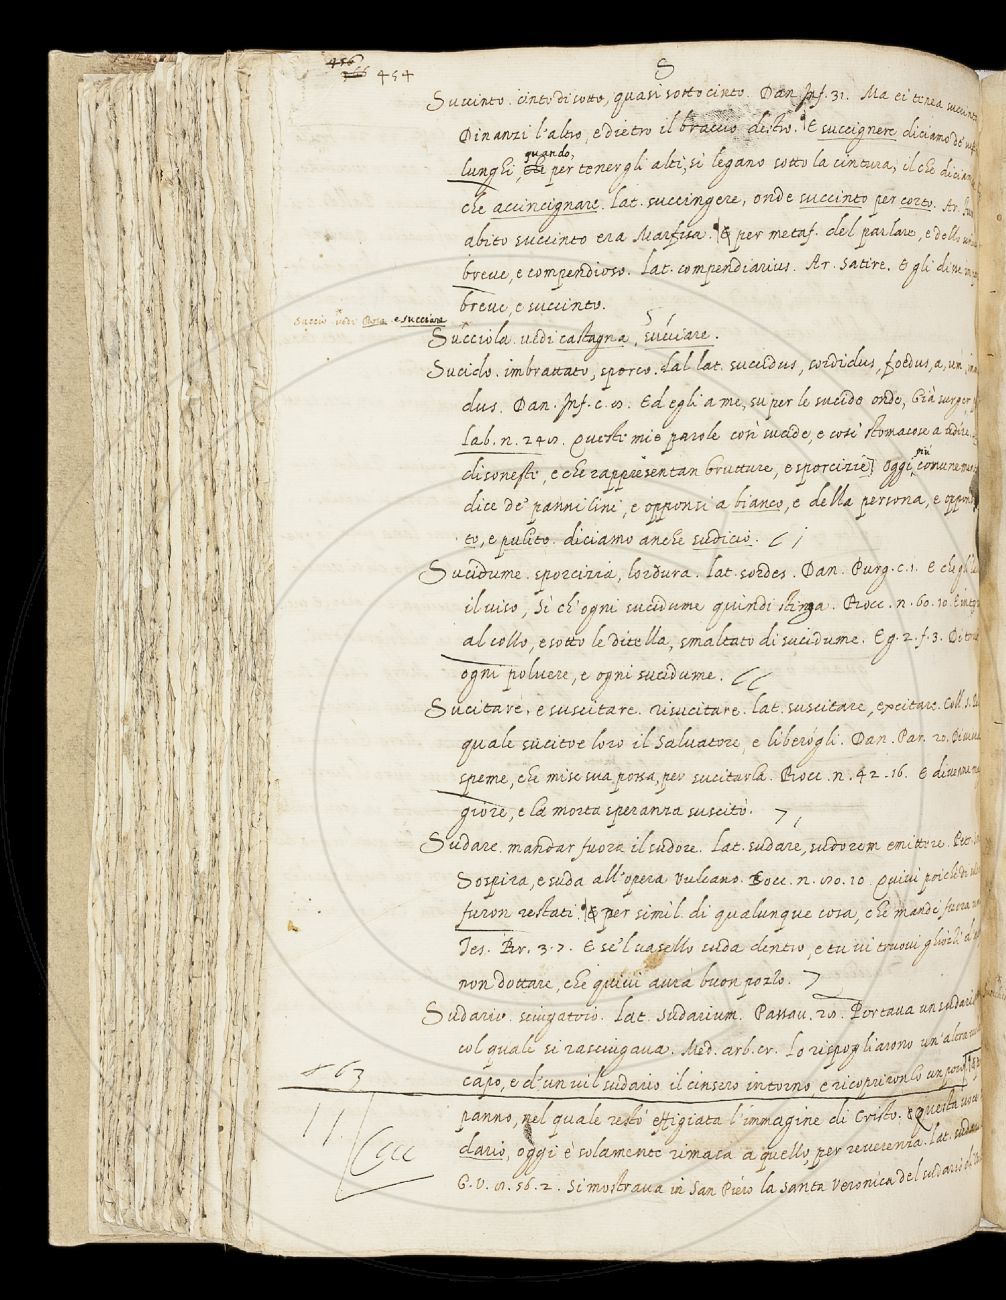 456
366 454
S
Succinto. cinto di sotto, quasi sotto cinto. Dan. Inf. 31. Ma ei tenea succinto
Dinanzi l'altro, e dietro il braccio destro. E succignere diciamo de'
lunghi, quando, che per tenergli alti, si legano sotto la cintura; il che diciamo
che accincignare. lat. succingere, onde succinto per corto. Ar. Fur.
abito succinto era Marfisa. E per metaf. del parlare, e dello
breue, e compendioso. lat. compendiarius. Ar. satire. E gli dine in
breue, e succinto.
Succio uedi Rosa e succiare
Succiola. uedi castagna, succiare.
Sucido. imbrattato, sporco. Dal lat. succidus, sordidus, foedus, a, um,
dus. Dan. Inf. c. 8. Ed egli a me, su per le sucide onde, Già
Lab. n. 248. Queste mie parole così sucide, e così stomacose a udire,
disoneste, e che rappresentan brutture, e sporcizie. Oggi più comunemente
dice de' panni lini, e opponsi a bianco, e della persona, e
to, e pulito. diciamo anche sudicio.
Sucidume. sporcizia, lordura. lat. sordes. Dan. Purg. c. 1. E che gli
il uiso, Sì ch'ogni sucidume quindi stinga. Bocc. n. 60. 10. E
al collo, e sotto le ditella, smaltato di sucidume. Eg. 2. f. 3. Di
ogni poluere, e ogni sucidume.
Sucitare, e suscitare. risucitare. lat. suscitare, excitare. Coll. S.
quale sucitoe loro il Saluatore, e liberógli. Dan. Par. 20. Di uiua
speme, che mise sua possa, per sucitarla. Bocc. n. 42. 16. E diuenne
giore, e la morta speranza suscitò.
Sudare. mandar fuora il sudore. lat. sudare, sudorem emittere. Pet.
Sospira, e suda all'opera Vulcano. Bocc. n. 80. 10. Quiui poiche di
furon restati. E per simil. di qualunque cosa, che mandi fuora
Tes. Br. 3. 7. E se'l uasello suda dentro, e tu ui truoui
non dottare, che quiui aura buon pozzo.
Sudario. sciugatoio. lat. sudarium. Passau. 28. Portaua un sudario
col quale si rasciugaua. Med. arb. cr. Lo rispogliarono un'altra
capo, e d'un uil sudario il cinsero intorno, e ricoprironlo un poco.
163
panno, nel quale restò effigiata l'immagine di Cristo. e questa uoce
11
dario, oggi è solamente rimasa a quello, per reuerenza. lat.
G. V. 8. 36. 2. Si mostraua in San Piero la Santa Veronica del sudario di